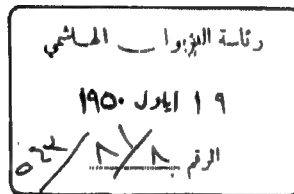 رئاسة الديوان الهاشمي
١٩ ايلول ١٩٥٠
الرقم